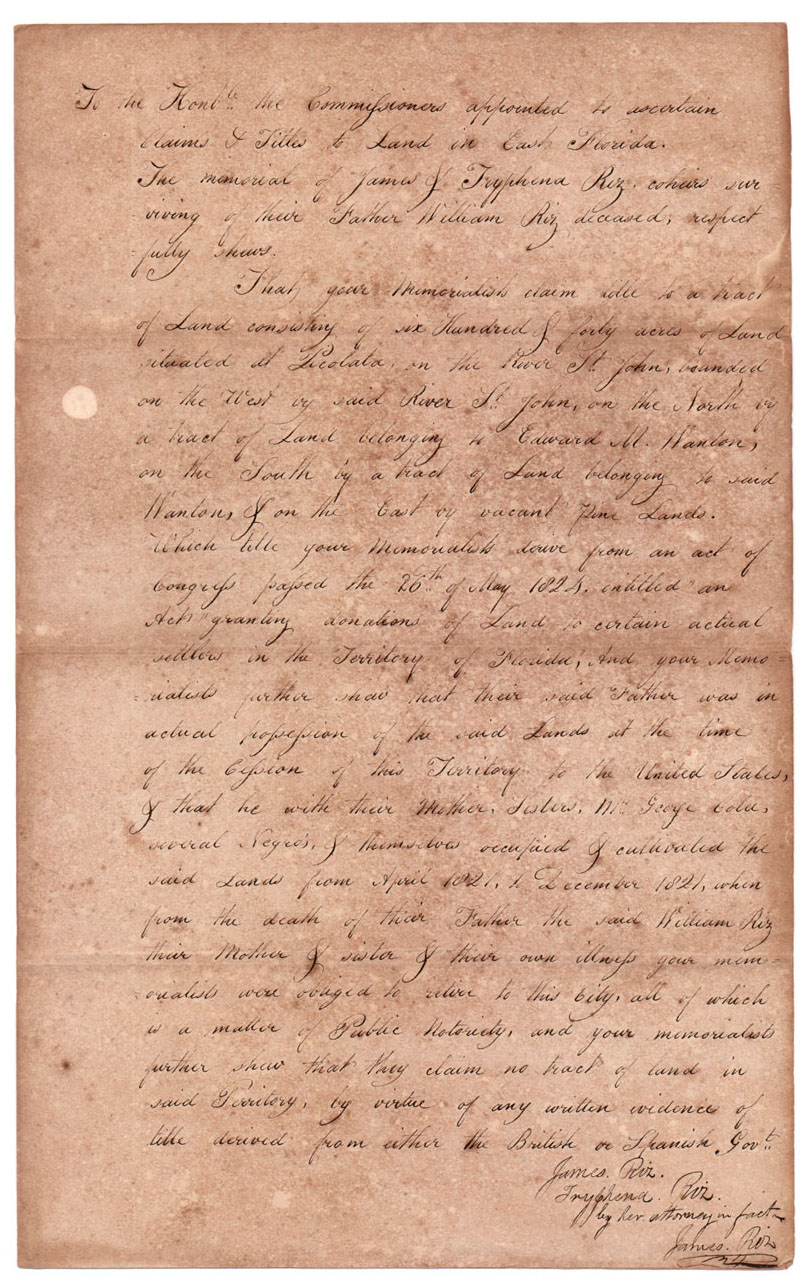 To the Honble. the Commissioners appointed to ascertain
Claims & Titles to Land in East Florida.
The memorial of James & Tryphena Riz. coheirs sur
-viving of their Father William Riz deceased, respect
-fully shews.
That your Memorialists claim title to a tract
of Land consisting of six Hundred & forty acres of Land
situated at Picolata, on the River St. John, bounded
on the West by said River St. John, on the North by
a tract of Land belonging to Edward M. Wanton,
on the South by a tract of Land belonging to said
Wanton, & on the East by vacant Pine Lands.
Which title your Memorialists derive from an act of
Congress passed the 26th. of May 1824. entitled "an
Act" granting donations of Land to certain actual
settlers in the Territory of Florida, And your Memo-
-rialists further shew that their said Father was in
actual possession of the said Lands at the time
of the Cession of this Territory to the United States,
& that he with their Mother, Sisters, Mr. George Cole,
several Negros, & themselves occupied & cultivated the
said Lands from April 1821, to December 1821, when
from the death of thier Father the said William Riz
their Mother & sister & their own illness your mem-
-orialists were obliged to retire to this City, all of which
is a matter of Public Notoriety, and your memorialists
further shew that they claim no tract of land in
said Territory, by virtue of any written evidence of
title derived from either the British or Spanish Govt.
James. Riz.
Tryphena. Riz.
by her attorney in fact
James. Riz